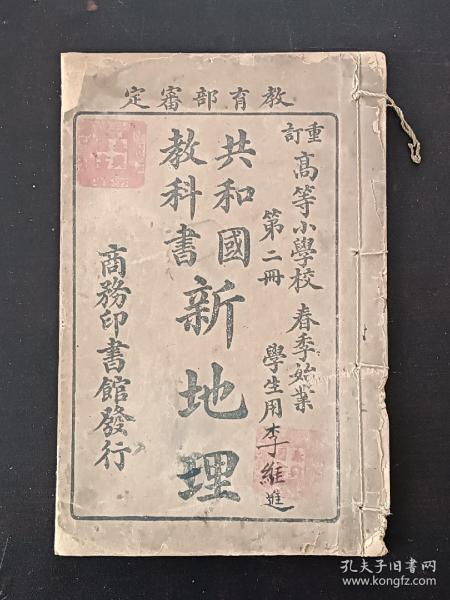 教育部審定
重訂
高等小學校
春季始業
第二冊
學生用
李維進
共和國
教科書
新地理
商務印書館發行
孔夫子旧书网
www.kongfz.com